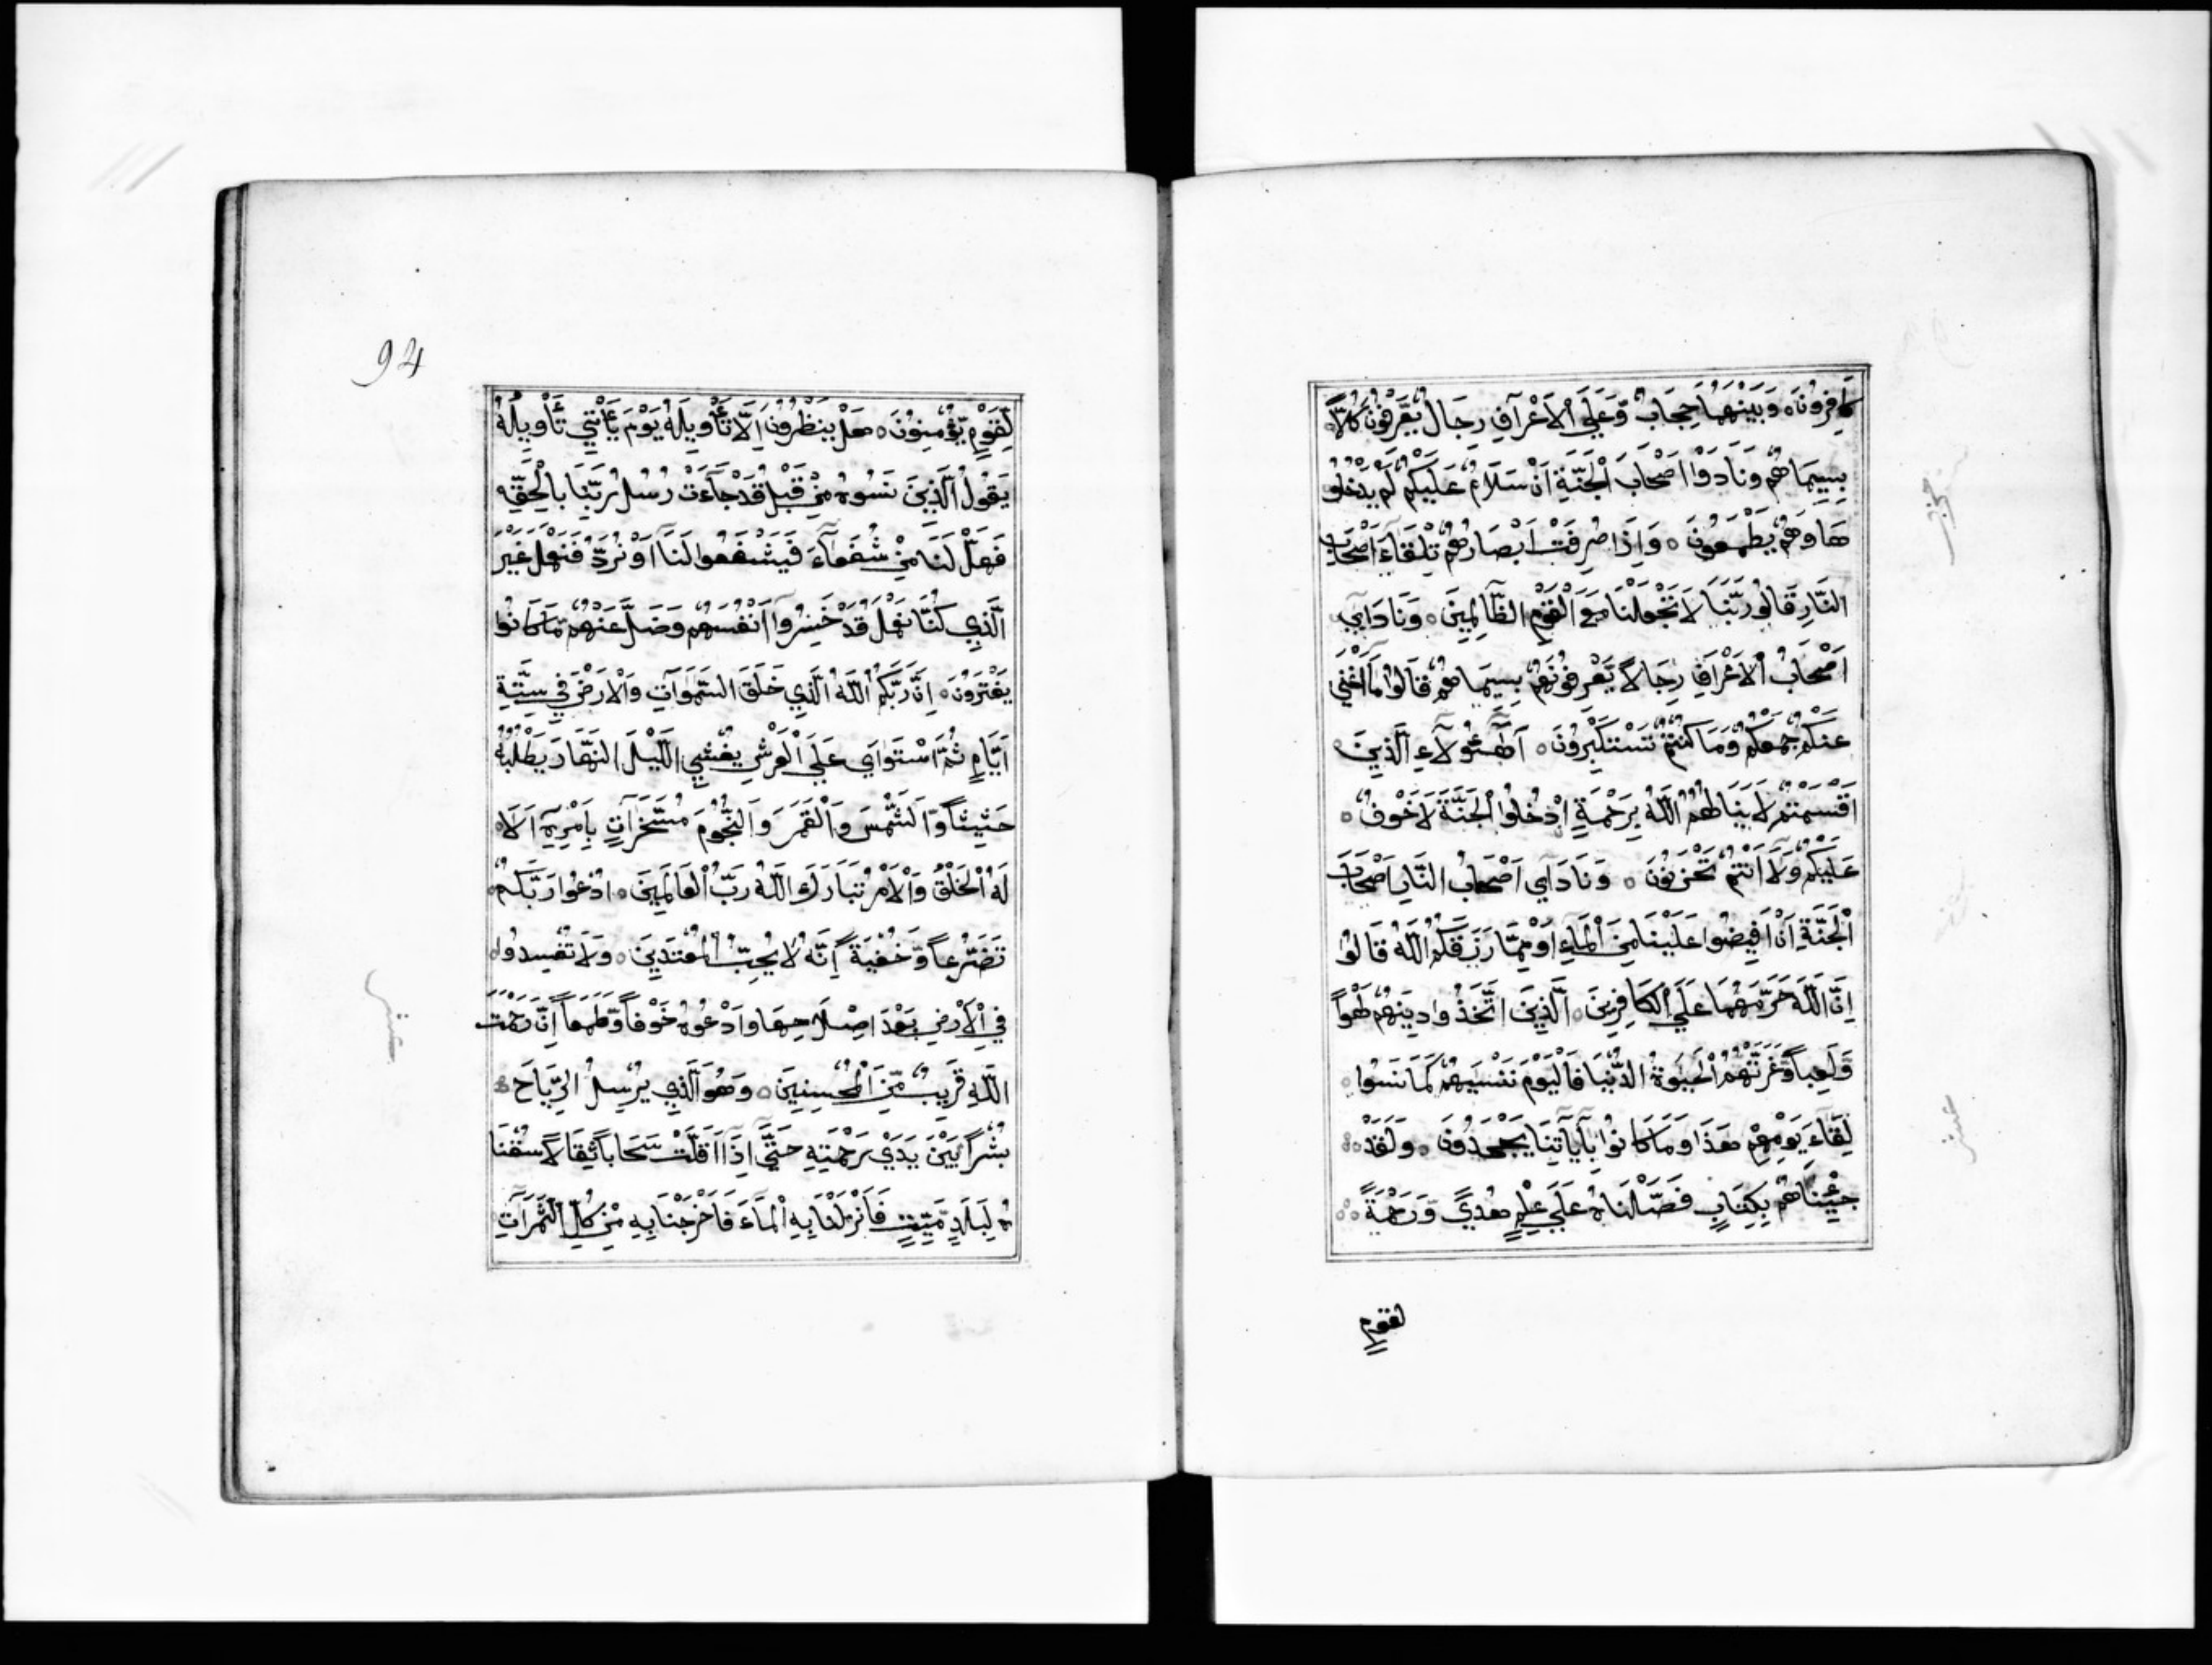 كَافِرُونَ ۝ وَبَيْنَهُمَا حِجَابٌ وَّعَلَي الْاَعْرَافِ رِجَالٌ يَّعْرِفُونَ كُلًّا
بِسِيمَاهُمْ وَنَادَوْا اَصْحَابَ الْجَنَّةِ اَنْ سَلَامٌ عَلَيْكُمْ لَمْ يَدْخُلُو
هَا وَهُمْ يَطْمَعُونَ ۝ وَاِذَا صُرِفَتْ اَبْصَارُهُمْ تِلْقَاءَ اَصْحَابِ
النَّارِ قَالُو رَبَّنَا لَا تَجْعَلْنَا مَعَ الْقَوْمِ الظَّالِمِينَ ۝ وَنَادَاي
اَصْحَابُ الْاَعْرَافِ رِجَالًا يَّعْرِفُونَهُمْ بِسِيمَاهُمْ قَالُوا مَا اَغْنَي
عَنْكُمْ جَمْعُكُمْ وَمَا كُنْتُمْ تَسْتَكْبِرُونَ ۝ اَهٰٓؤُلَاءِ الَّذِينَ
اَقْسَمْتُمْ لَا يَنَالُهُمُ اللّٰهُ بِرَحْمَةٍ اُدْخُلُوا الْجَنَّةَ لَا خَوْفٌ
عَلَيْكُمْ وَلَا اَنْتُمْ تَحْزَنُونَ ۝ وَنَادَاي اَصْحَابُ النَّارِ اَصْحَابَ
الْجَنَّةِ اَنْ اَفِيضُوا عَلَيْنَا مِنَ الْمَاءِ اَوْ مِمَّا رَزَقَكُمُ اللّٰهُ قَالُوا
اِنَّ اللّٰهَ حَرَّمَهُمَا عَلَي الْكَافِرِينَ ۝ الَّذِينَ اتَّخَذُوا دِينَهُمْ لَهْوًا
وَّلَعِبًا وَّغَرَّتْهُمُ الْحَيٰوةُ الدُّنْيَا فَالْيَوْمَ نَنْسَيهُمْ كَمَا نَسُوا
لِقَاءَ يَوْمِهِمْ هَذَا وَمَا كَانُوا بِآيَاتِنَا يَجْحَدُونَ ۝ وَلَقَدْ
جِئْنَاهُمْ بِكِتَابٍ فَصَّلْنَاهُ عَلَي عِلْمٍ هُدًي وَّرَحْمَةً
لقومٍ
94
لِّقَوْمٍ يُّؤْمِنُونَ ۝ هَلْ يَنْظُرُونَ اِلَّا تَأْوِيلَهُ يَوْمَ يَأْتِي تَأْوِيلُهُ
يَقُولُ الَّذِينَ نَسُوهُ مِنْ قَبْلُ قَدْ جَاءَتْ رُسُلُ رَبِّنَا بِالْحَقِّ
فَهَلْ لَنَا مِنْ شُفَعَاءَ فَيَشْفَعُوا لَنَا اَوْ نُرَدُّ فَنَعْمَلَ غَيْرَ
الَّذِي كُنَّا نَعْمَلُ قَدْ خَسِرُوا اَنْفُسَهُمْ وَضَلَّ عَنْهُمْ مَا كَانُوا
يَفْتَرُونَ ۝ اِنَّ رَبَّكُمُ اللّٰهُ الَّذِي خَلَقَ السَّمٰوَاتِ وَالْاَرْضَ فِي سِتَّةِ
اَيَّامٍ ثُمَّ اسْتَوَاي عَلَي الْعَرْشِ يُغْشِي اللَّيْلَ النَّهَارَ يَطْلُبُهُ
حَثِيثًا وَّالشَّمْسَ وَالْقَمَرَ وَالنُّجُومَ مُسَخَّرَاتٍ بِاَمْرِهِ اَلَا
لَهُ الْخَلْقُ وَالْاَمْرُ تَبَارَكَ اللّٰهُ رَبُّ الْعَالَمِينَ ۝ ادْعُوا رَبَّكُمْ
تَضَرُّعًا وَّخُفْيَةً اِنَّهُ لَا يُحِبُّ الْمُعْتَدِينَ ۝ وَلَا تُفْسِدُوا
فِي الْاَرْضِ بَعْدَ اِصْلَاحِهَا وَادْعُوهُ خَوْفًا وَّطَمَعًا اِنَّ رَحْمَتَ
اللّٰهِ قَرِيبٌ مِّنَ الْمُحْسِنِينَ ۝ وَهُوَ الَّذِي يُرْسِلُ الرِّيَاحَ
بُشْرًا بَيْنَ يَدَيْ رَحْمَتِهِ حَتَّي اِذَا اَقَلَّتْ سَحَابًا ثِقَالًا سُقْنَا
هُ لِبَلَدٍ مَّيِّتٍ فَاَنْزَلْنَا بِهِ الْمَاءَ فَاَخْرَجْنَا بِهِ مِنْ كُلِّ الثَّمَرَاتِ